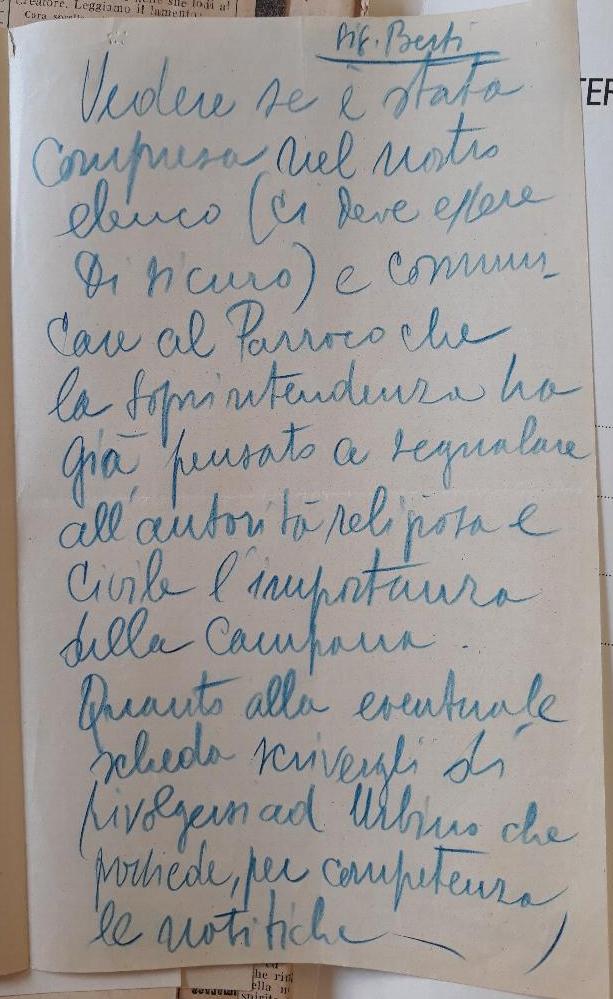 creatore. Leggiamo il lament
Cara
Sig. Berti
Vedere se è stata
compresa nel nostro
elenco (ci deve essere
di sicuro) e comuni-
care al Parroco che
la Soprintendenza ha
già pensato a segnalare
all'autorità religiosa e
civile l'importanza
della Campana.
Quanto alla eventuale
scheda scrivergli di
rivolgersi ad Urbino che
possiede, per competenza
le notifiche
TER
he rin
ella n